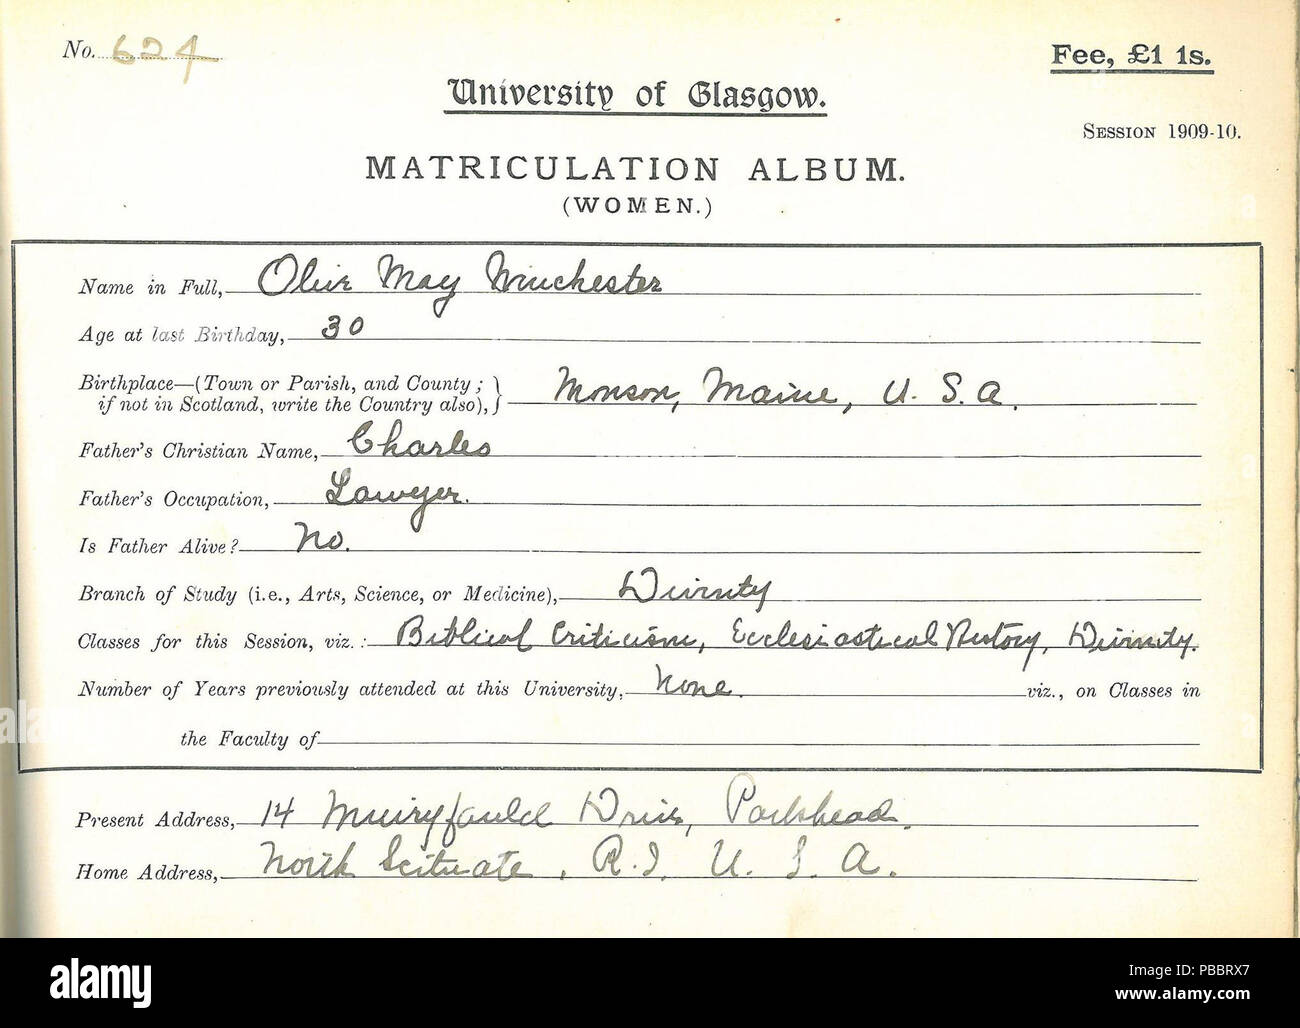 No. 624
Fee, £1 1s.
University of Glasgow.
Session 1909-10.
MATRICULATION ALBUM.
(WOMEN.)
Name in Full, Olive May Winchester
Age at last Birthday, 30
Birthplace—(Town or Parish, and County; if not in Scotland, write the Country also),} Monson, Maine, U. S. A.
Father's Christian Name, Charles
Father's Occupation, Lawyer.
Is Father Alive? No.
Branch of Study (i.e., Arts, Science, or Medicine), Divinity
Classes for this Session, viz.: Biblical Criticism, Ecclesiastical History, Divinity.
Number of Years previously attended at this University, None. viz., on Classes in
the Faculty of
Present Address, 14 Muiryfauld Drive, Parkhead.
Home Address, North Scituate, R.I. U. S. A.
alamy
Image ID: PBBRX7
www.alamy.com